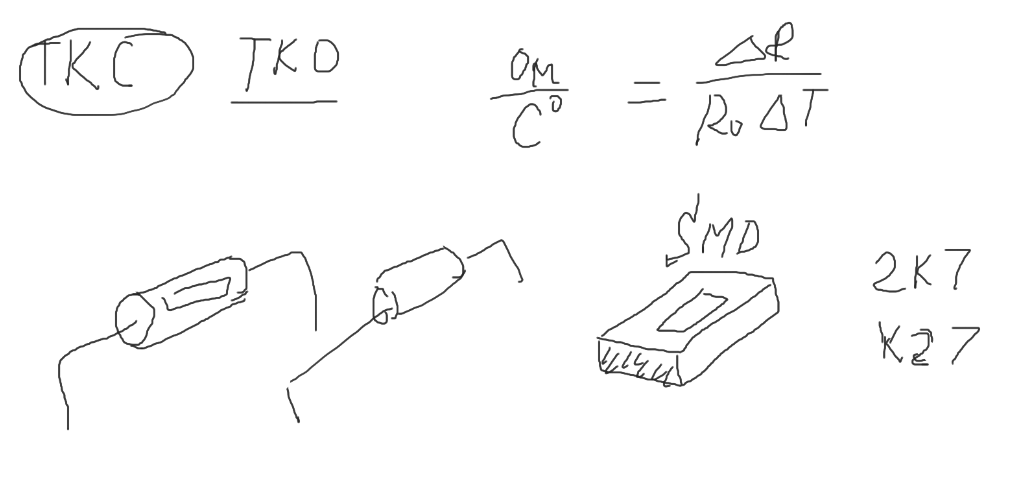 ТКС ТКО
Ом/С° = ΔR/R₀ΔT
SMD
2К7
К27